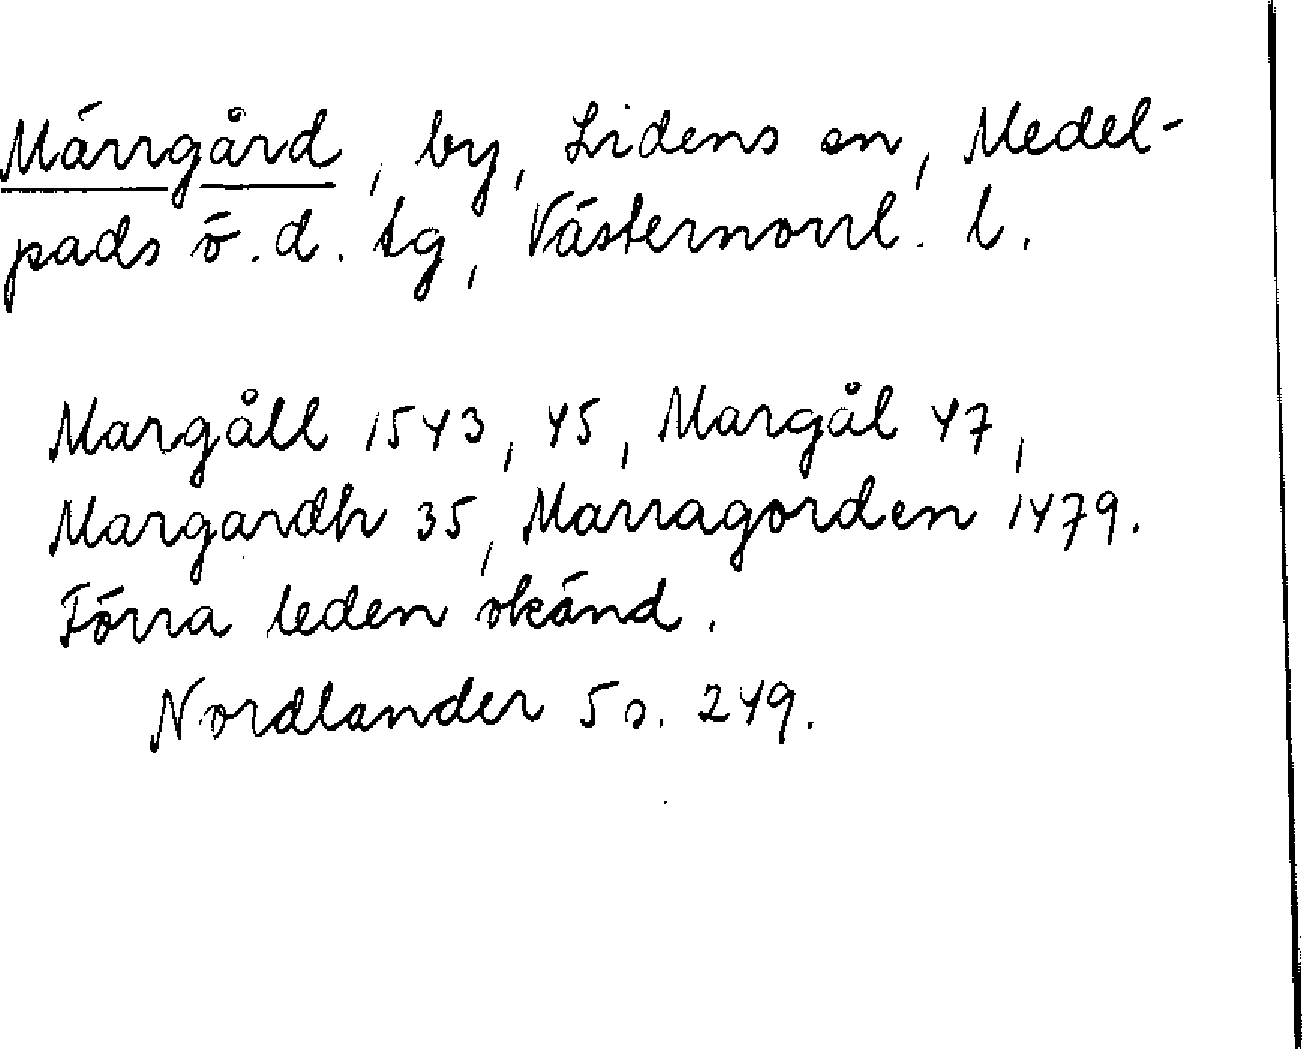 Märrgård, by, Lidens sn, Medel-
pads ö. d. tg, Västernorrl. l.
Margåll 1543, 45, Margål 47,
Margardh 35, Marragorden 1479.
Förra leden okänd.
Nordlander 5 s. 249.